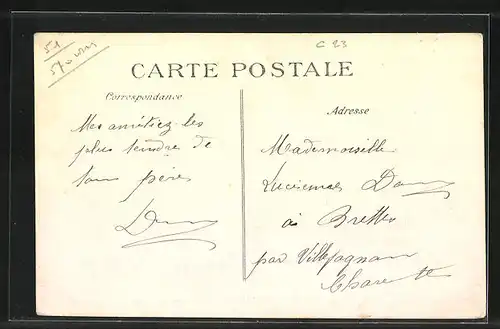 51
C 23
CARTE POSTALE
Correspondance
Mes amitiez les
plus tendre de
ton père
Adresse
Mademoiselle
à Brettes
par Villefagnan
Charente